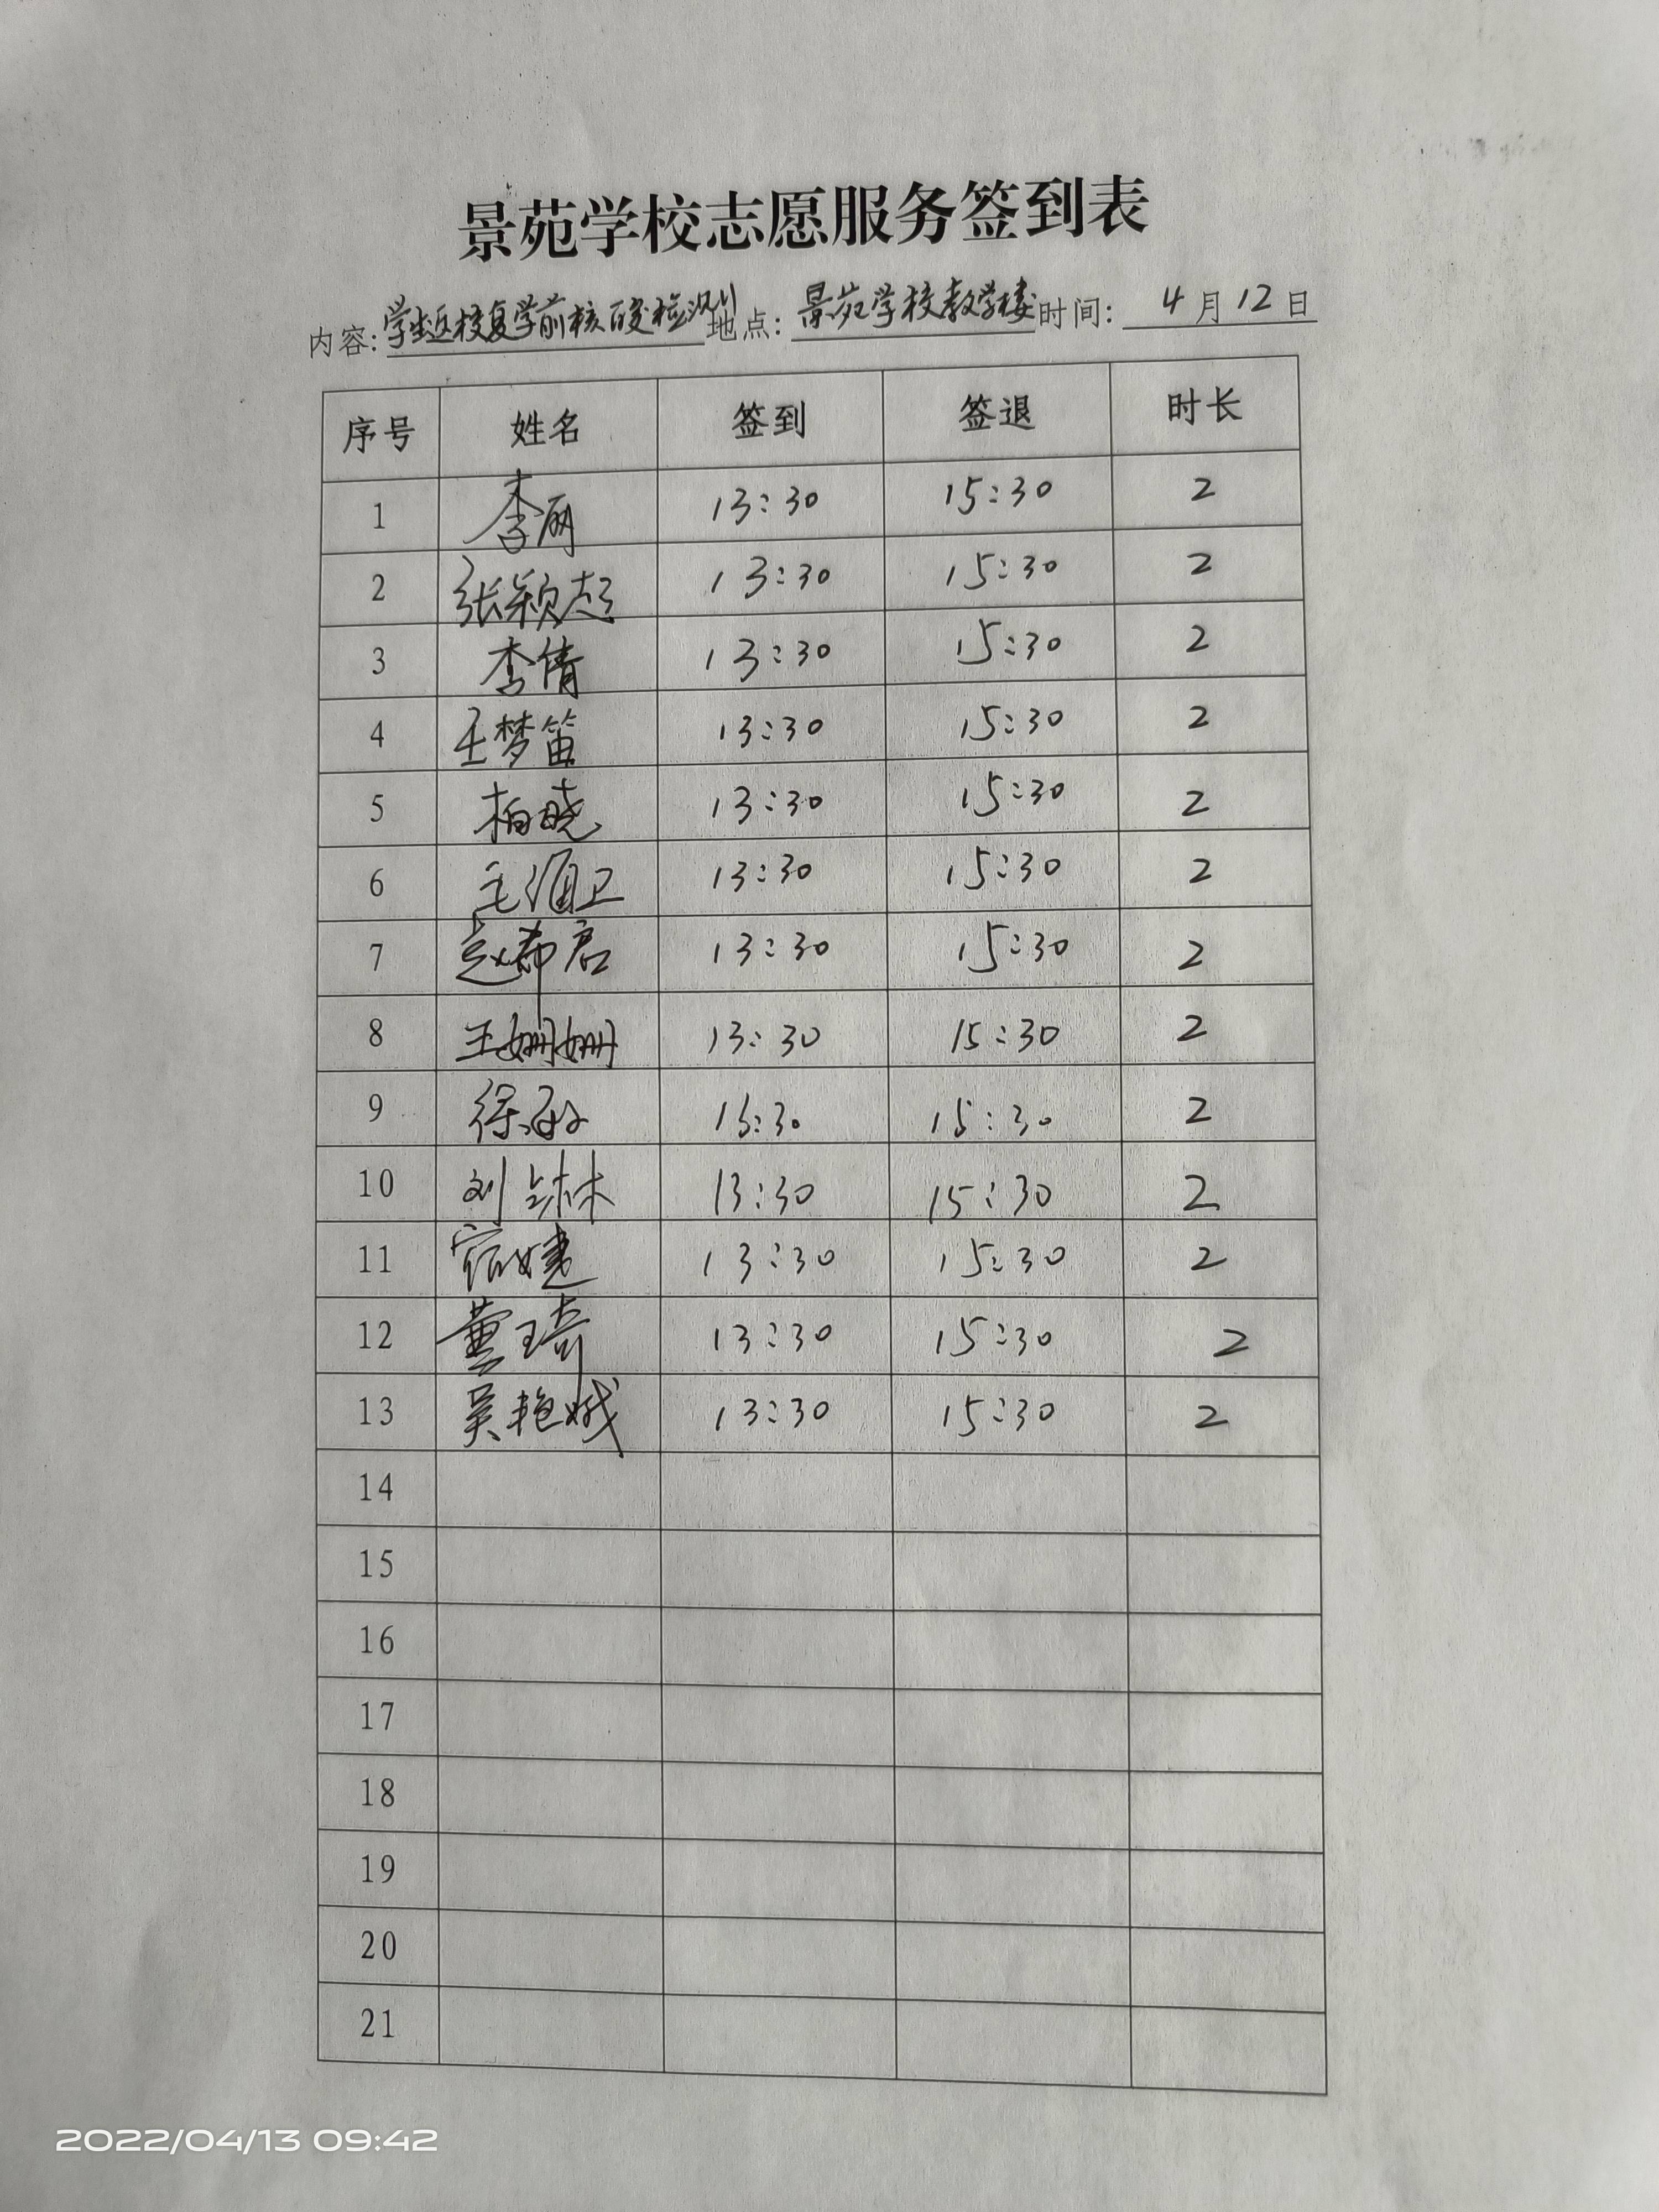 景苑学校志愿服务签到表
内容:学生返校复学前核酸检测 地点:景苑学校教学楼 时间: 4月12日
序号 姓名 签到 签退 时长
1 李丽 13:30 15:30 2
2 张颖超 13:30 15:30 2
3 李倩 13:30 15:30 2
4 王梦笛 13:30 15:30 2
5 柏晓 13:30 15:30 2
6 毛 卫 13:30 15:30 2
7 赵希君 13:30 15:30 2
8 王姗姗 13:30 15:30 2
9 徐 15:30 2
10 刘 林 13:30 15:30 2
11 宿婕 13:30 15:30 2
12 黄琦 13:30 15:30 2
13 吴艳娥 13:30 15:30 2
14
15
16
17
18
19
20
21
2022/04/13 09:42